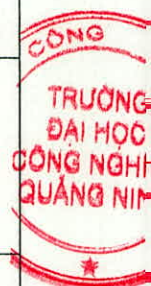 CÔNG
TRƯỜNG
ĐẠI HỌC
CÔNG NGHI
QUẢNG NIN